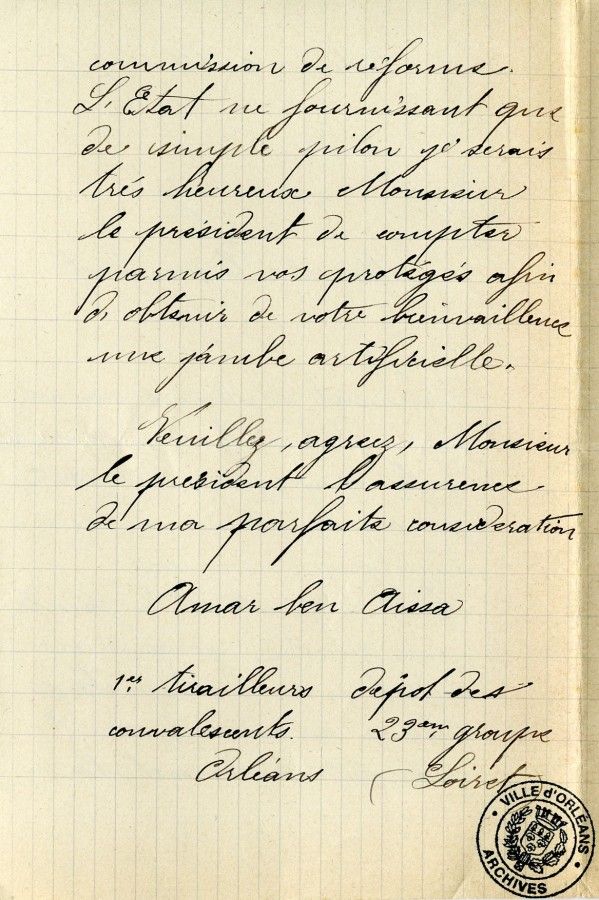 commission de réforme.
L'Etat ne fournissant que
de simple pilon je serais
trés heureux Monsieur
le président de compter
parmis vos protégés afin
d'obtenir de votre bienvaillence
une jambe artificielle.
Veuillez, agreez, Monsieur
le president l'assurence
de ma parfaite consideration
Amar ben Aissa
1er tirailleurs dépot des
convalescents. 23eme groupe
Orléans (Loiret)
VILLE d'ORLÉANS
ARCHIVES